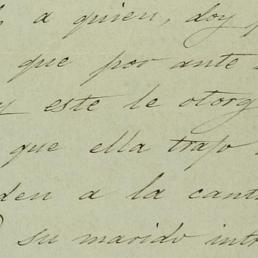 a quien, doy
que por ante
este le otorg
que ella trajo
den a la cant
su marido intro